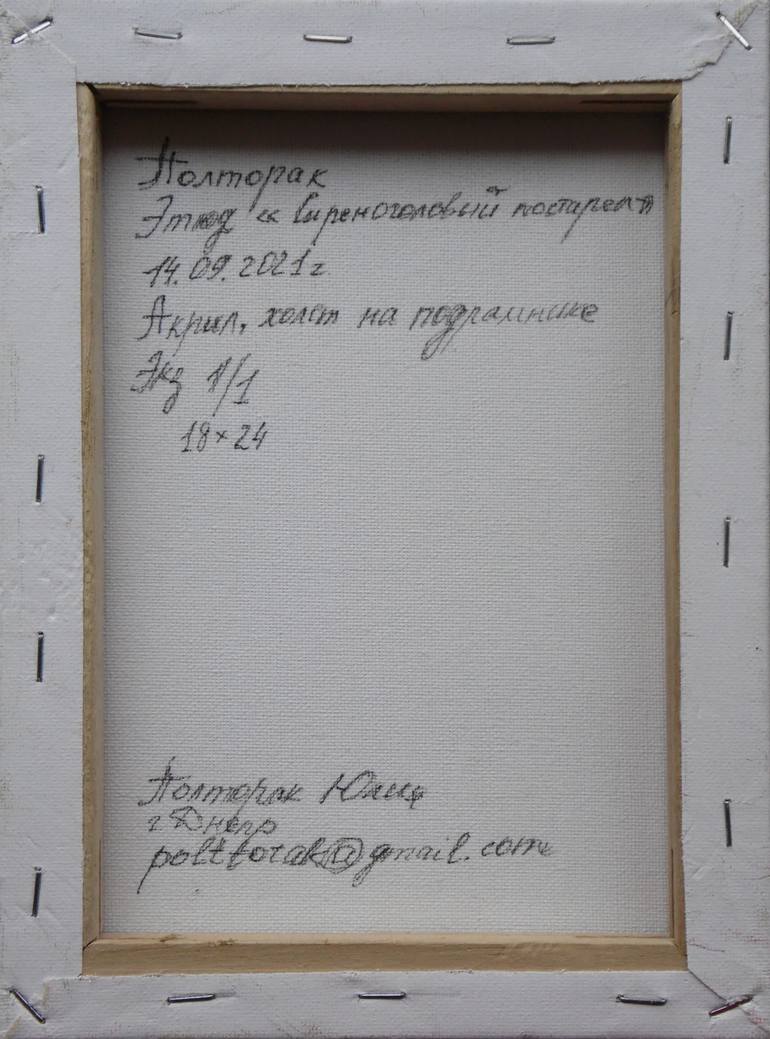 Полторак
Этюд « Сиреноголовый постарел»
14.09.2021г
Акрил, холст на подрамнике
Экз 1/1
18×24
Полторак Юлия
г Днепр
polttorak@gmail.com